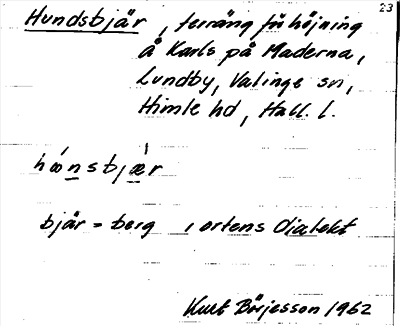 23
Hundsbjär, terräng för höjning
å Karls på Maderna,
Lundby, Valinge sn,
Himle hd, Hall. l.
bjär = berg i ortens dialekt
Kurt Börjesson 1962